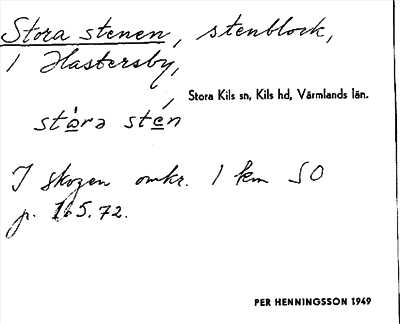 Stora stenen, stenblock,
i Hastersby,
Stora Kils sn, Kils hd, Värmlands län.
stòra stén
I skogen omkr. 1 km SO
p. 165.72.
PER HENNINGSSON 1949